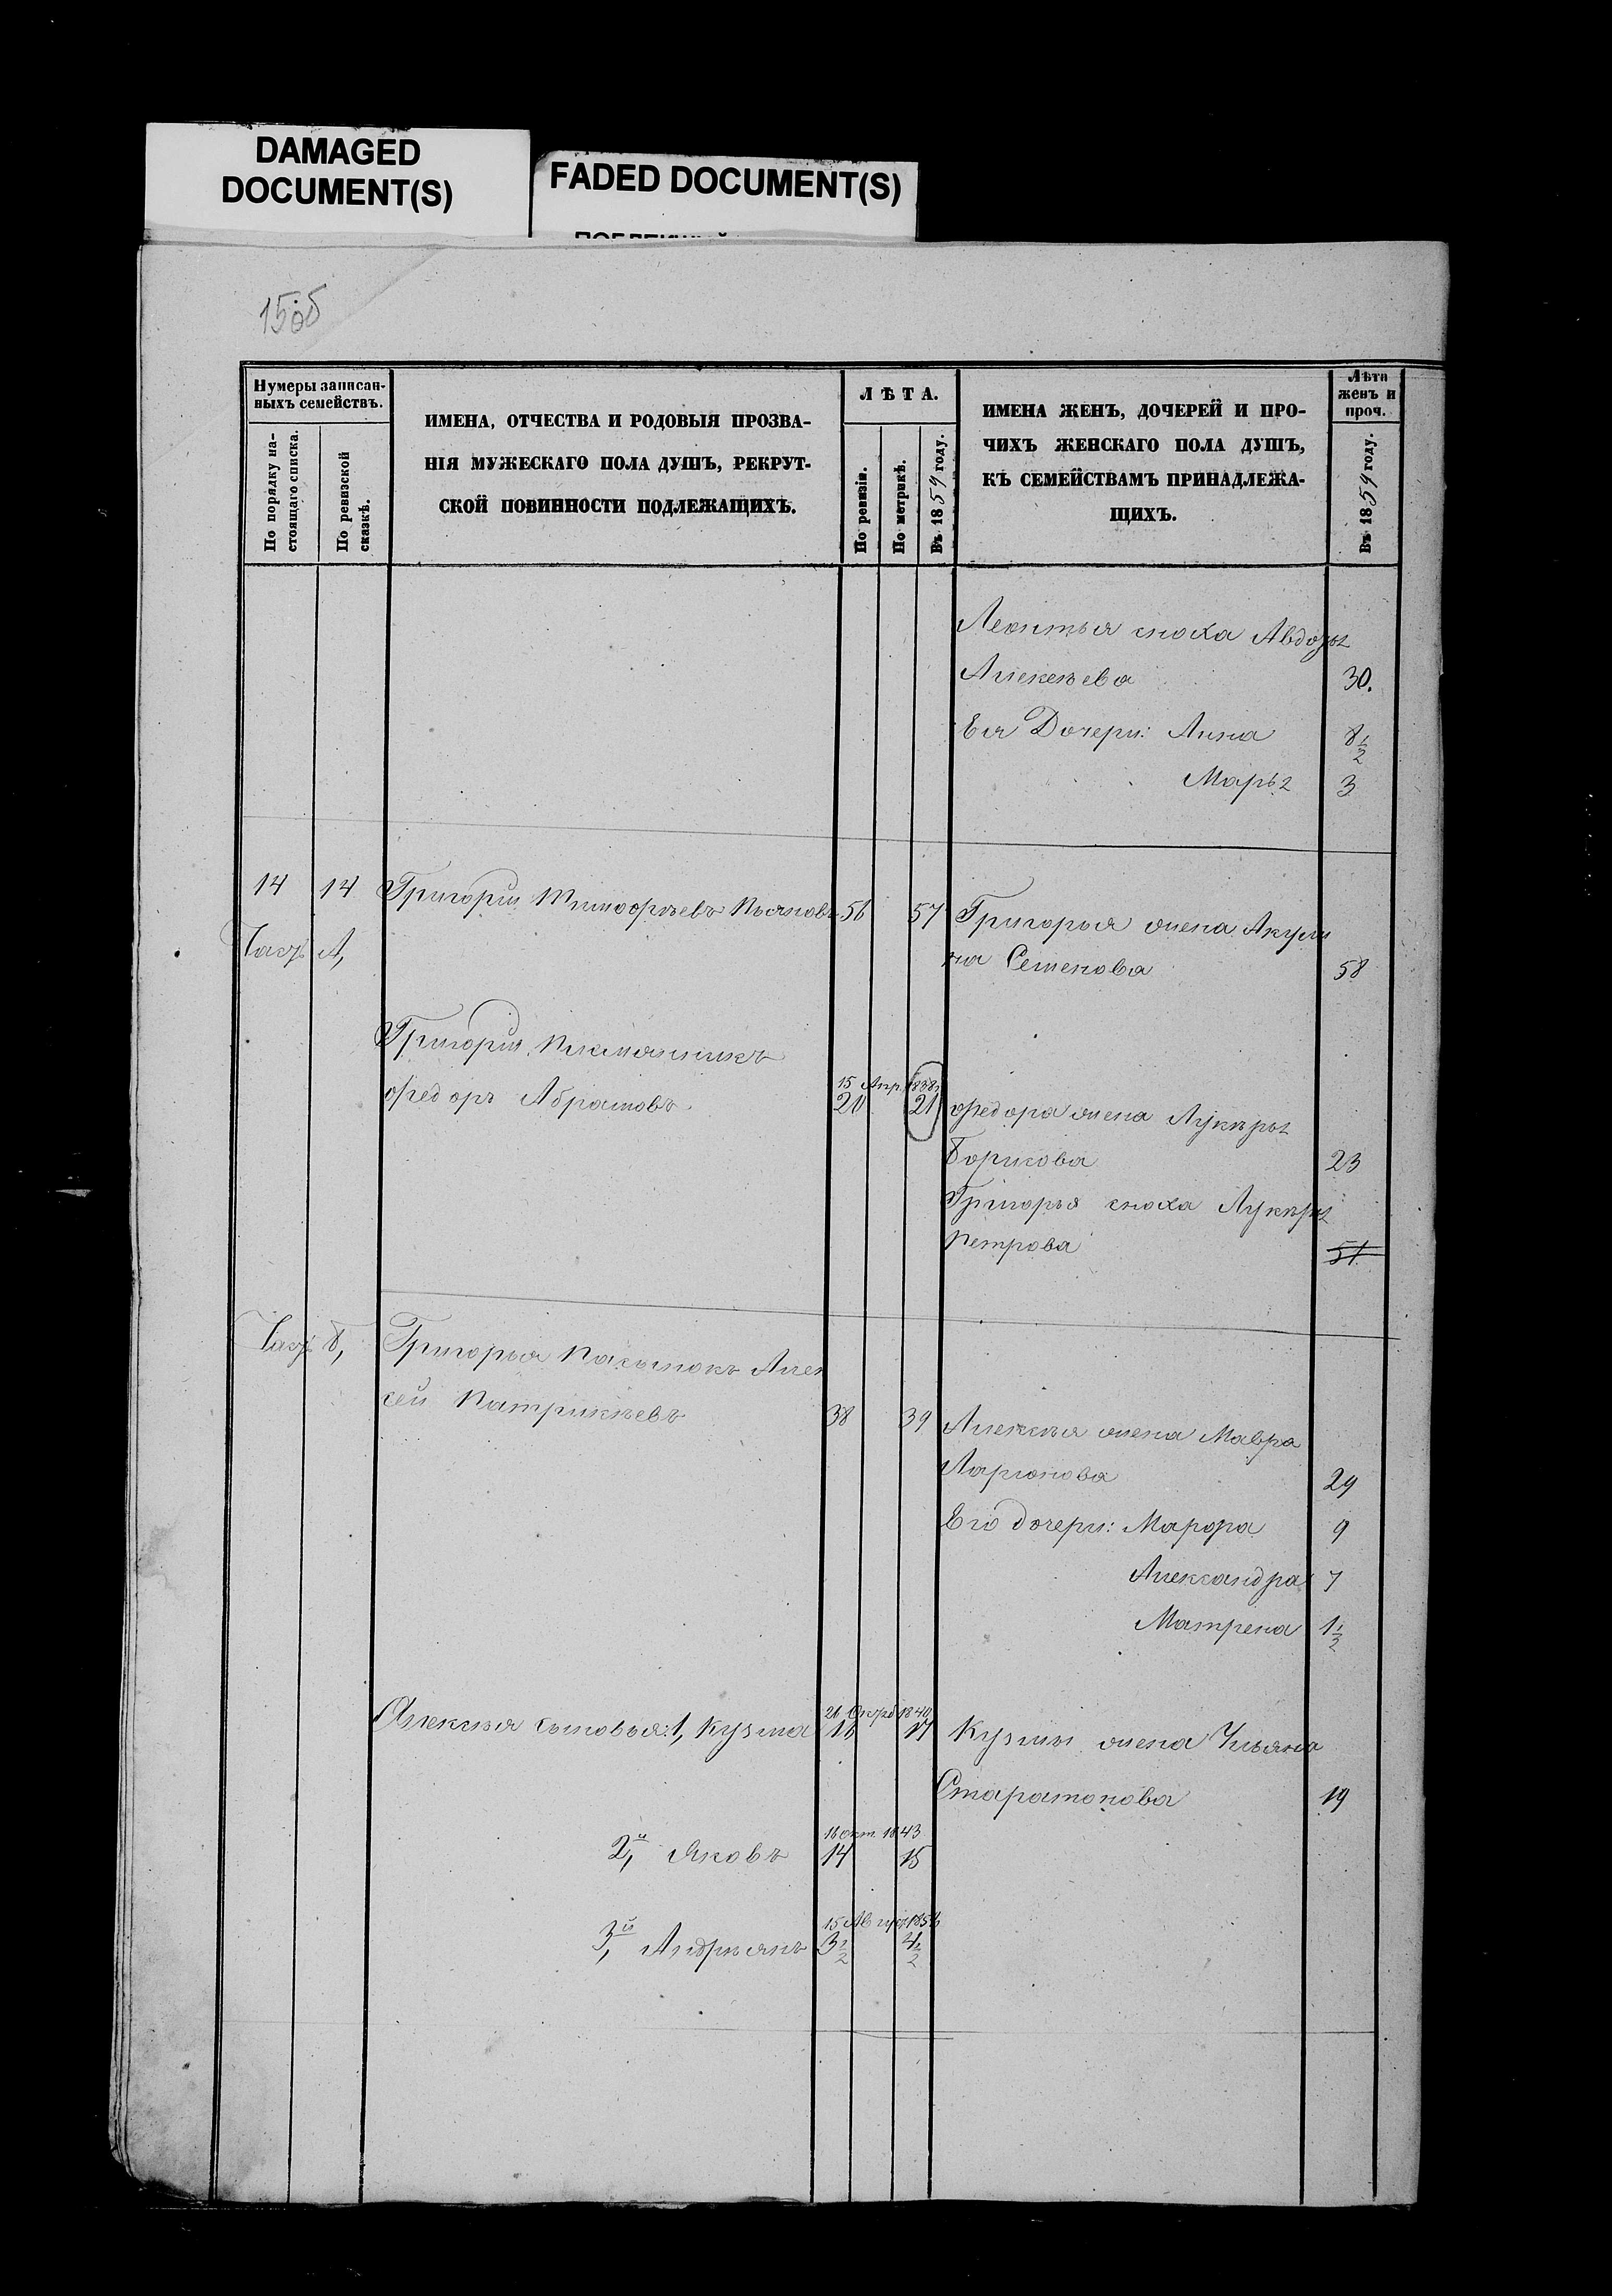 DAMAGED
DOCUMENT(S)
FADED DOCUMENT(S)
Нумеры записан-
ныхъ семействъ.
По порядку на-
стоящаго списка.
По ревизской
сказкѣ.
ИМЕНА, ОТЧЕСТВА И РОДОВЫЯ ПРОЗВА-
НІЯ МУЖЕСКАГО ПОЛА ДУШЪ, РЕКРУТ-
СКОЙ ПОВИННОСТИ ПОДЛЕЖАЩИХЪ.
ЛѢТА.
По ревизіи.
По метрикѣ.
Въ 1859 году.
ИМЕНА ЖЕНЪ, ДОЧЕРЕЙ И ПРО-
ЧИХЪ ЖЕНСКАГО ПОЛА ДУШЪ,
КЪ СЕМЕЙСТВАМЪ ПРИНАДЛЕЖА-
ЩИХЪ.
Лѣта
женъ и
проч.
Въ 1859 году.
Леонтья сноха Авдотья
Алексѣева 30.
Ея Дочери: Анна 8½
Марья 3
14 14 Григорій Тимофѣевъ 56 57 Григорья жена Акули
на Семенова 58
А,
Григорья племянникъ
Федоръ Абрамовъ 20 21
15 Апр. 1838
Федора жена Лукерья
Борисова 23
Григорья сноха Лукерья
Петрова 51
Б, Григорья пасынокъ Алек
сей Патрикѣевъ 38 39
Алексѣя жена Мавра
Ларионова 29
Его дочери: Марфа 9
Александра 7
Матрена 1½
Алексѣя сыновья: 1, Кузма 16 17
Кузмы жена Ульяна
19
2й, Яковъ 14 15
16 окт. 1843
3й, Андреянъ 3½ 4½